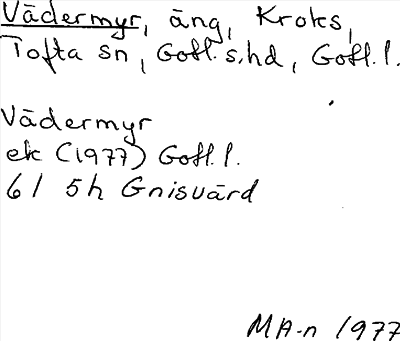 Vädermyr, äng, Kroks,
Tofta sn, Gotl. s. hd, Gotl. l.
Vädermyr
ek (1977) Gotl. l.
6I 5h Gnisvärd
MA-n 1977